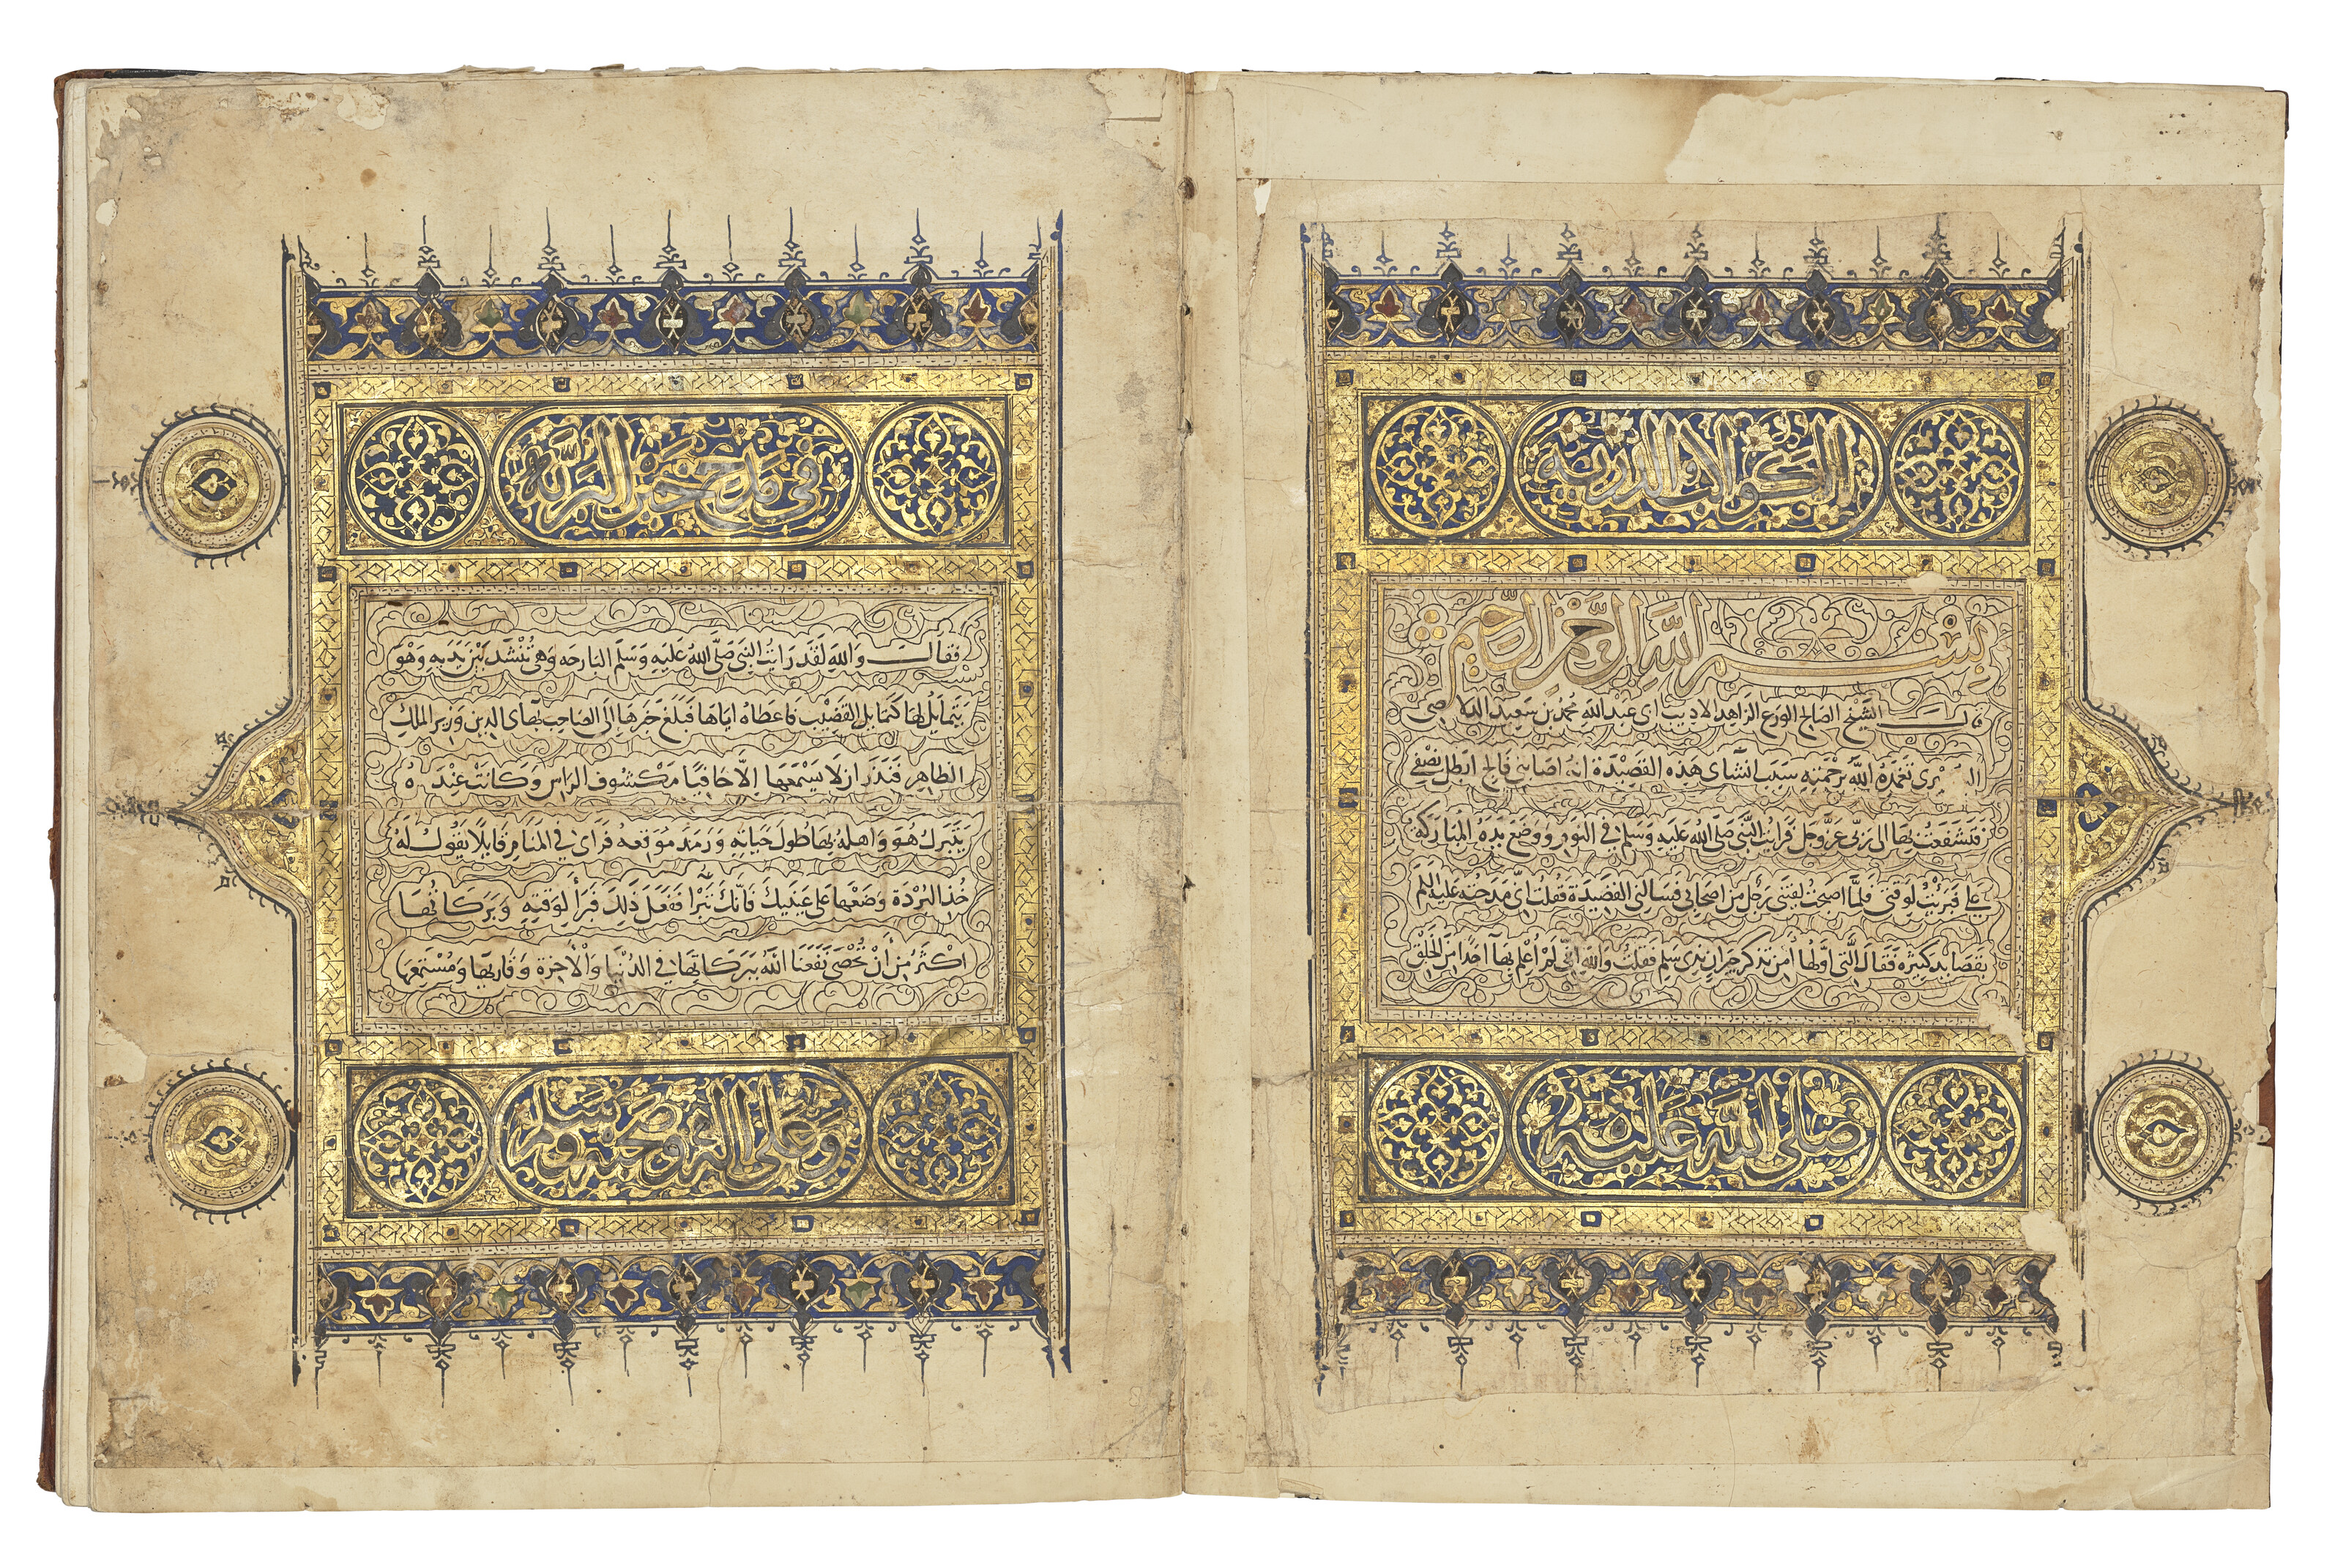 الكواكب الدرية
بسم الله الرحمن الرحيم
قال الشيخ الصالح الورع الزاهد الاديب ابى عبد الله محمد بن سعيد الدلاصى
تغمده الله برحمته سبب انشاى هذه القصيدة انه اصابنى فالج ابطل نصفى
فتشفعت بها الى ربى عز وجل فرايت النبى صَلّى اللهُ عَليهِ وَسَلم فى النوم ووضع يده المباركة
على فبرئت لوقتى فلما اصبحت لقينى رجل من اصحابى فسالنى القصيدة فقلت انى مدحته عليه السلم
بقصايد كثيره فقال التى اولها أمن تذكر جيران بذى سلم فقلت والله انى لم اعلم بها احدا من الخلق
صلى الله عليه
فى مدح خير البرية
فقال والله لقد رايت النبى صَلّى اللهُ عَليهِ وَسَلم البارحه وهى تنشد بين يديه وهو
يتمايل لها كتمايل القضيب فاعطاه اياها فبلغ خبرها الى الصاحب بهآى الدين وزير الملك
الظاهر فنذر ان لا يسمعها إلا حافيا مكشوف الراس وكانت عنده
يتبرك هو واهله بها طول حياته ورمد موقعه فراى فى المنام قايلا يقول له
خذ البردة وضعها على عينيك فانك تبرا ففعل ذلك فبرأ لوقته وبركاتها
اكثر من أن تحصى نفعنا الله ببركاتها فى الدنيا والاخرة وقاريها ومستمعها
وعلى اله وصحبه وسلم